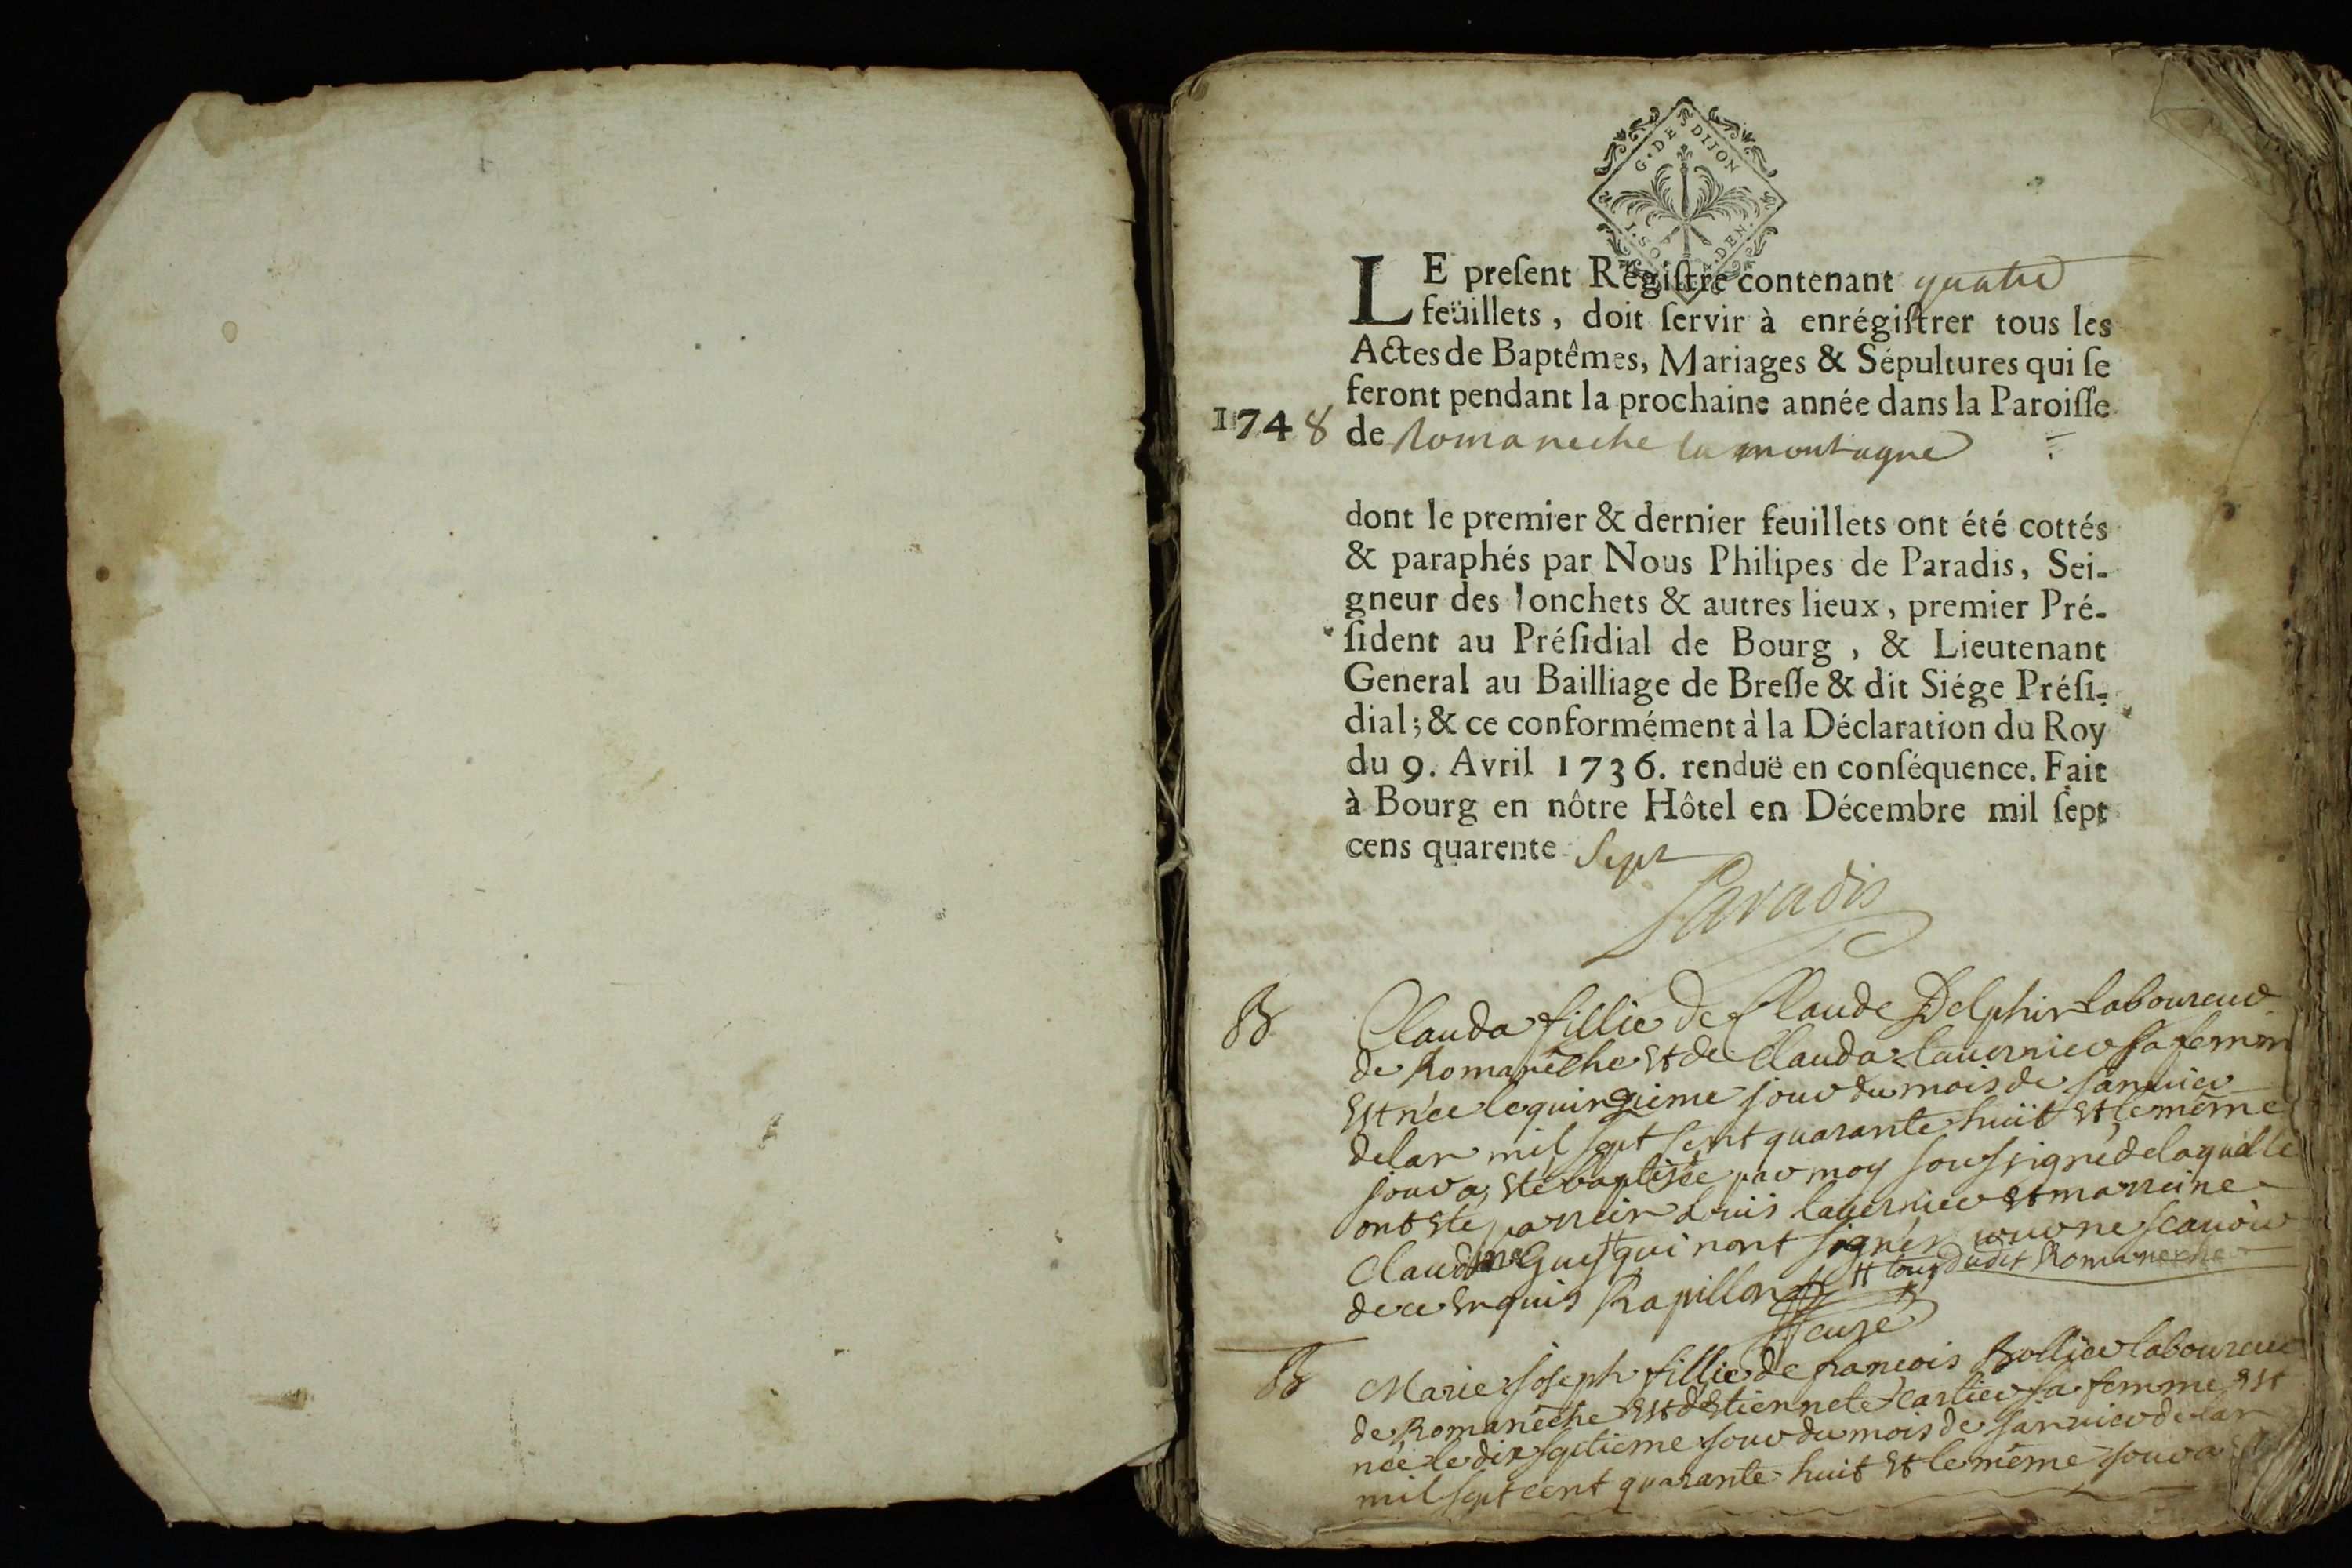 G. DE DIJON
I. SO DEN.
LE preſent Régiſtre contenant quatre
feüillets, doit ſervir à enrégiſtrer tous les
Actes de Baptêmes, Mariages & Sépultures qui ſe
feront pendant la prochaine année dans la Paroiſſe
1748 de Romaneche la montagne
dont le premier & dernier feuillets ont été cottés
& paraphés par Nous Philipes de Paradis, Sei-
gneur des Ionchets & autres lieux, premier Pré-
ſident au Préſidial de Bourg, & Lieutenant
General au Bailliage de Breſſe & dit Siége Préſi-
dial; & ce conformément à la Déclaration du Roy
du 9. Avril 1736. renduë en conſéquence. Fait
à Bourg en nôtre Hôtel en Décembre mil ſept
cens quarente Sept
Paradis
B Clauda fillie de Claude Delphin Laboureur
de Romanêche et de Clauda Lauernier sa femme
est née le quinzieme jour du mois de januier
de lan mil sept sent quarante huit et le même
jour a, été baptisée par moy soussigné de laquelle
ont eté parrein Louis lauernier et marreine
Claudine Guy qui nont signer pour ne scauoir
# tous dudit Romaneche
de ce enquis Rapillon
cure
B Marie joseph fillie de francois Bollier laboureur
de Romanêche et d'etiennete Carlier sa femme est
née le dix septieme jour du mois de januier de lan
mil sept cent quarante huit et le même jour a